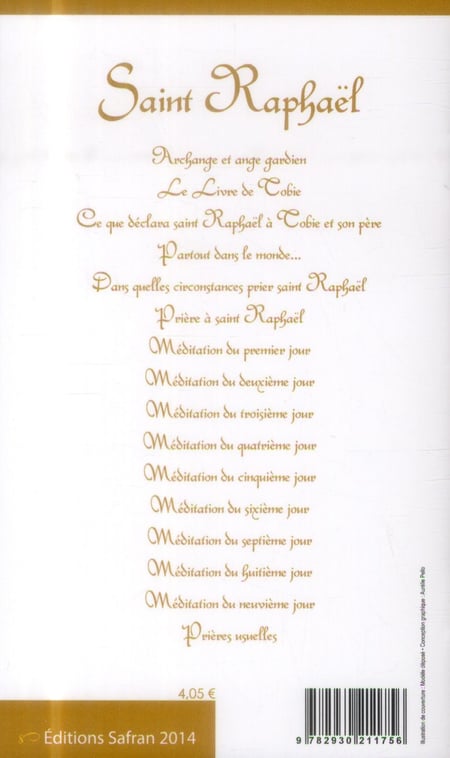 Saint Raphaël
Archange et ange gardien
Le Livre de Tobie
Ce que déclara saint Raphaël à Tobie et son père
Partout dans le monde...
Dans quelles circonstances prier saint Raphaël
Prière à saint Raphaël
Méditation du premier jour
Méditation du deuxième jour
Méditation du troisième jour
Méditation du quatrième jour
Méditation du cinquième jour
Méditation du sixième jour
Méditation du septième jour
Méditation du huitième jour
Méditation du neuvième jour
Prières usuelles
4,05 €
Éditions Safran 2014
9 782930 211756
Illustration de couverture : Modèle déposé • Conception graphique : Aurélie Pello